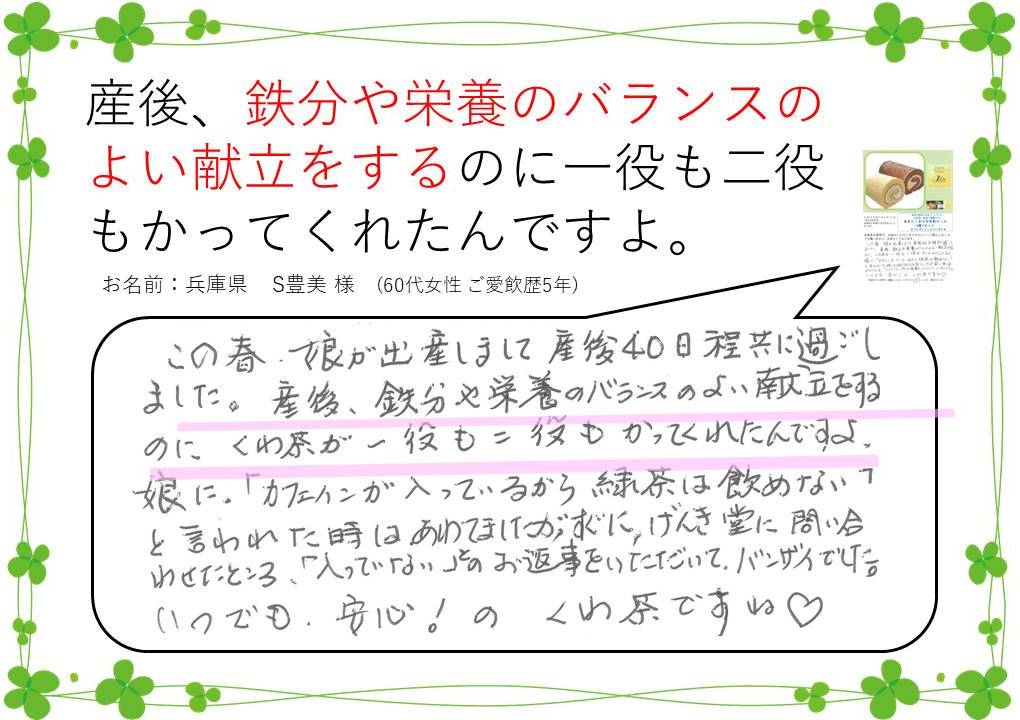 産後、鉄分や栄養のバランスの
よい献立をするのに一役も二役
もかってくれたんですよ。
お名前：兵庫県　S豊美 様　(60代女性 ご愛飲歴5年)
この春、娘が出産しまして産後40日程共に過ごし
ました。産後、鉄分や栄養のバランスのよい献立をする
のに、くわ茶が一役も二役もかってくれたんですよ、
娘に。「カフェインが入っているから緑茶は飲めない」
と言われた時はあわてましたが、すぐに、げんき堂に問い合
わせたところ、「入っでない」とのお返事をいただいて、バンザイでした。
いつでも、安心！の くわ茶ですね♡